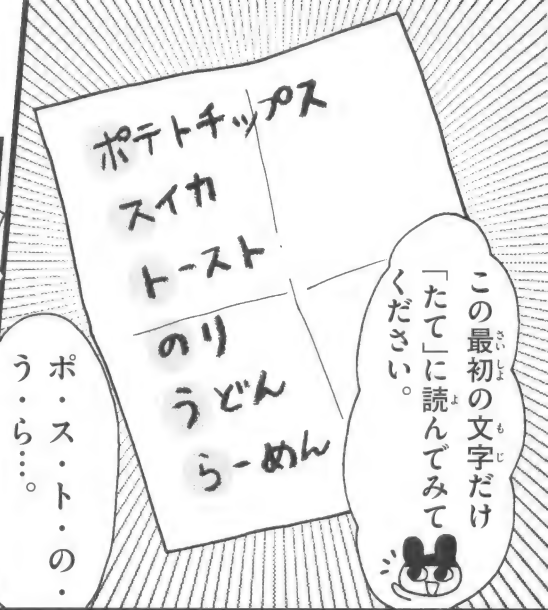 ポテトチップス
スイカ
トースト
のり
うどん
らーめん
この最初の文字だけ
「たて」に読んでみて
ください。
ポ・ス・ト・の・
う・ら…。